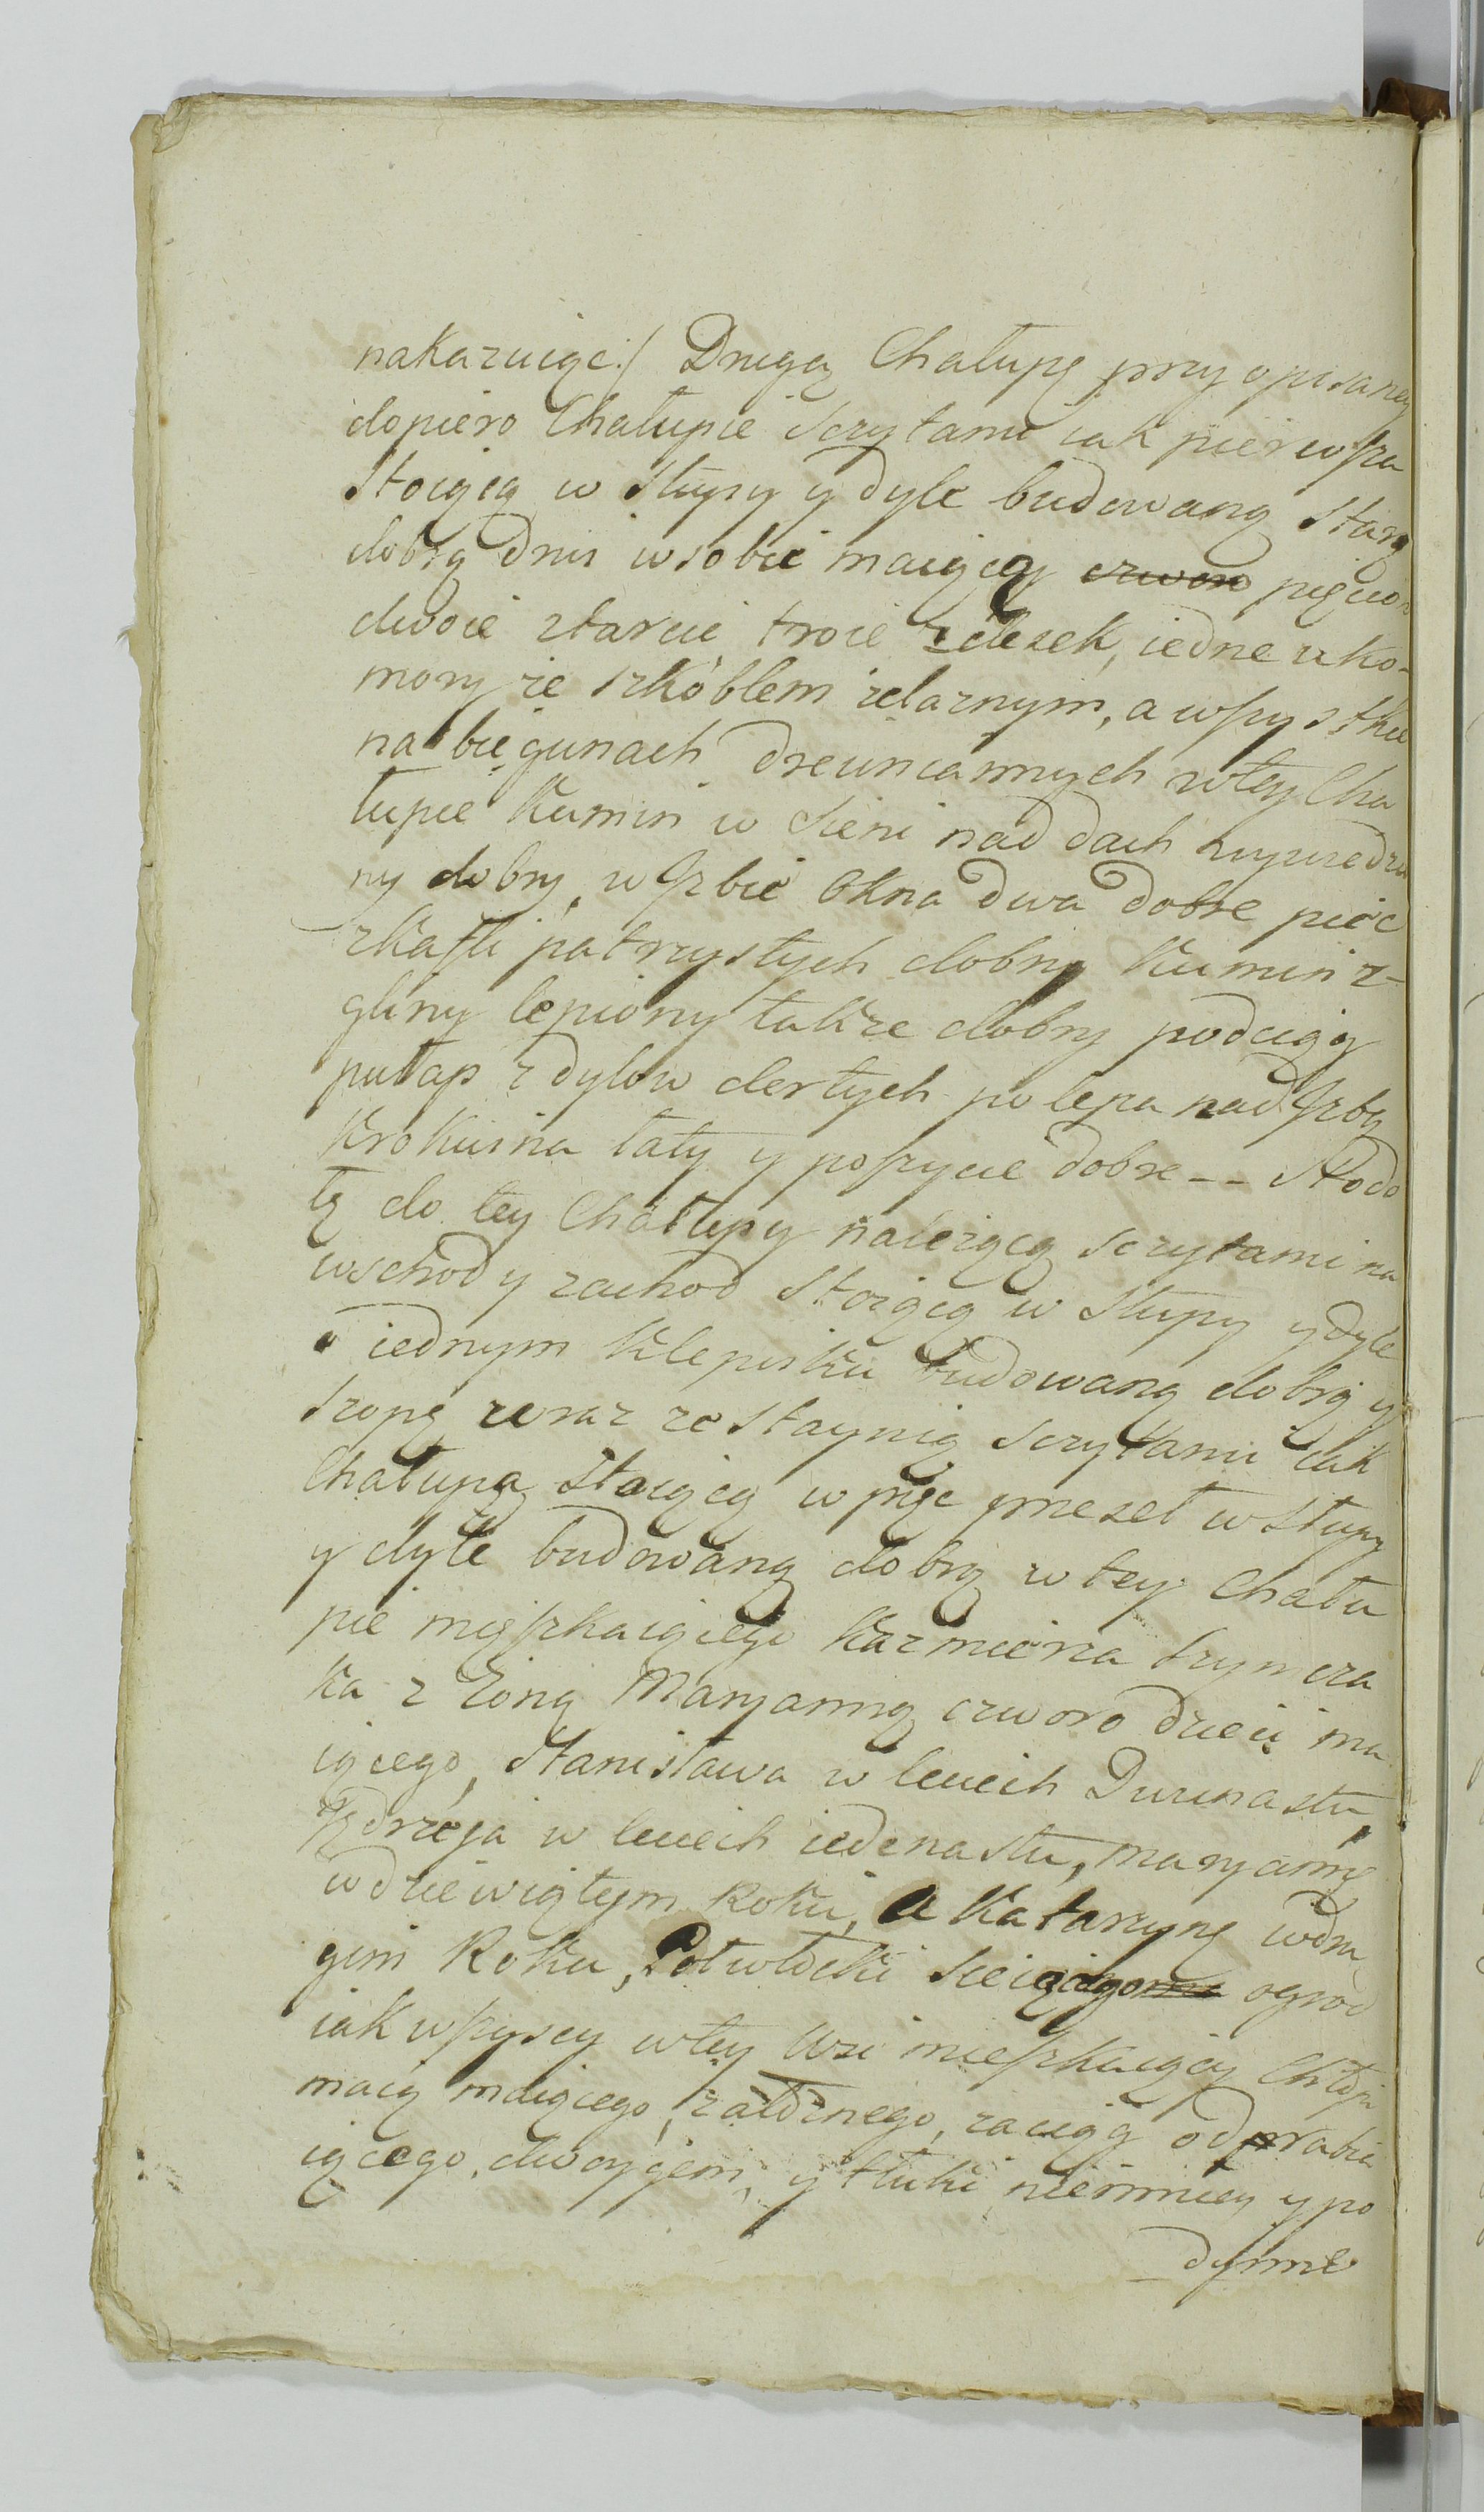 nakazuiąc./ Drugą Chałupę przy opisaney
dopiero Chałupie sczytami iak pierwsza
stoiącą w słupy y dyle budowaną starą
dobrą Drzwi w sobie maiącą czworo pięcior
dwoie ztarcic troie z desek, iedne u ko-
mory ze szkoblem żelaznym, a wszystkie
na biegunach drewnianych w tey Cha
łupie Kumin w Sieni nad dach wywiedzio
ny dobry, w Izbie Okna dwa dobre piec
z Kafli patrzystych dobry Kumin z-
gliny lepiony takze dobry podciąg
pułap z dylow dertych polepa nad Izbą
Krokwina łaty y poszycie dobre -- Stodo
łę do tey Chałupy nalezącą sczytami na
wschod y zachod stoiącą w słupy y dyle
o iednym Klepisku budowaną dobrą y
szopę wraz ze staynią sczytami iak
Chałupa stoiącą w pięć przeseł w słupy
y dyle budowaną dobrą w tey Chału
pie mięszkaiącego Kazmierza
ka z Zoną Maryanną czworo dzieci ma
iącego, Stanisława w leciech Dwunastu,
Jędrzeja w leciech iedenastu, Maryannę
w dziewiątym Roku, a Katarzynę w dru
gim Roku, Połwłoki sieiącego ogrod
iak wszyscy w tey Wsi mieszkaiący Chłopi
maią maiącego, załoznego, zaciąg odprabia
iącego, dwoygiem, y tłuki niemniey y po
dymne